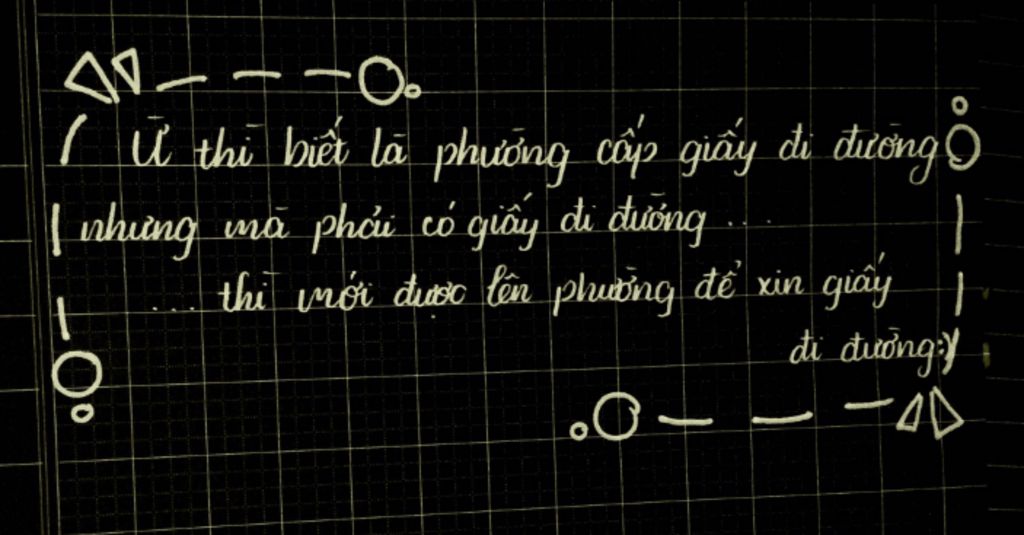 Ừ thì biết là phường cấp giấy đi đường
nhưng mà phải có giấy đi đường ...
... thì mới được lên phường để xin giấy
đi đường:)